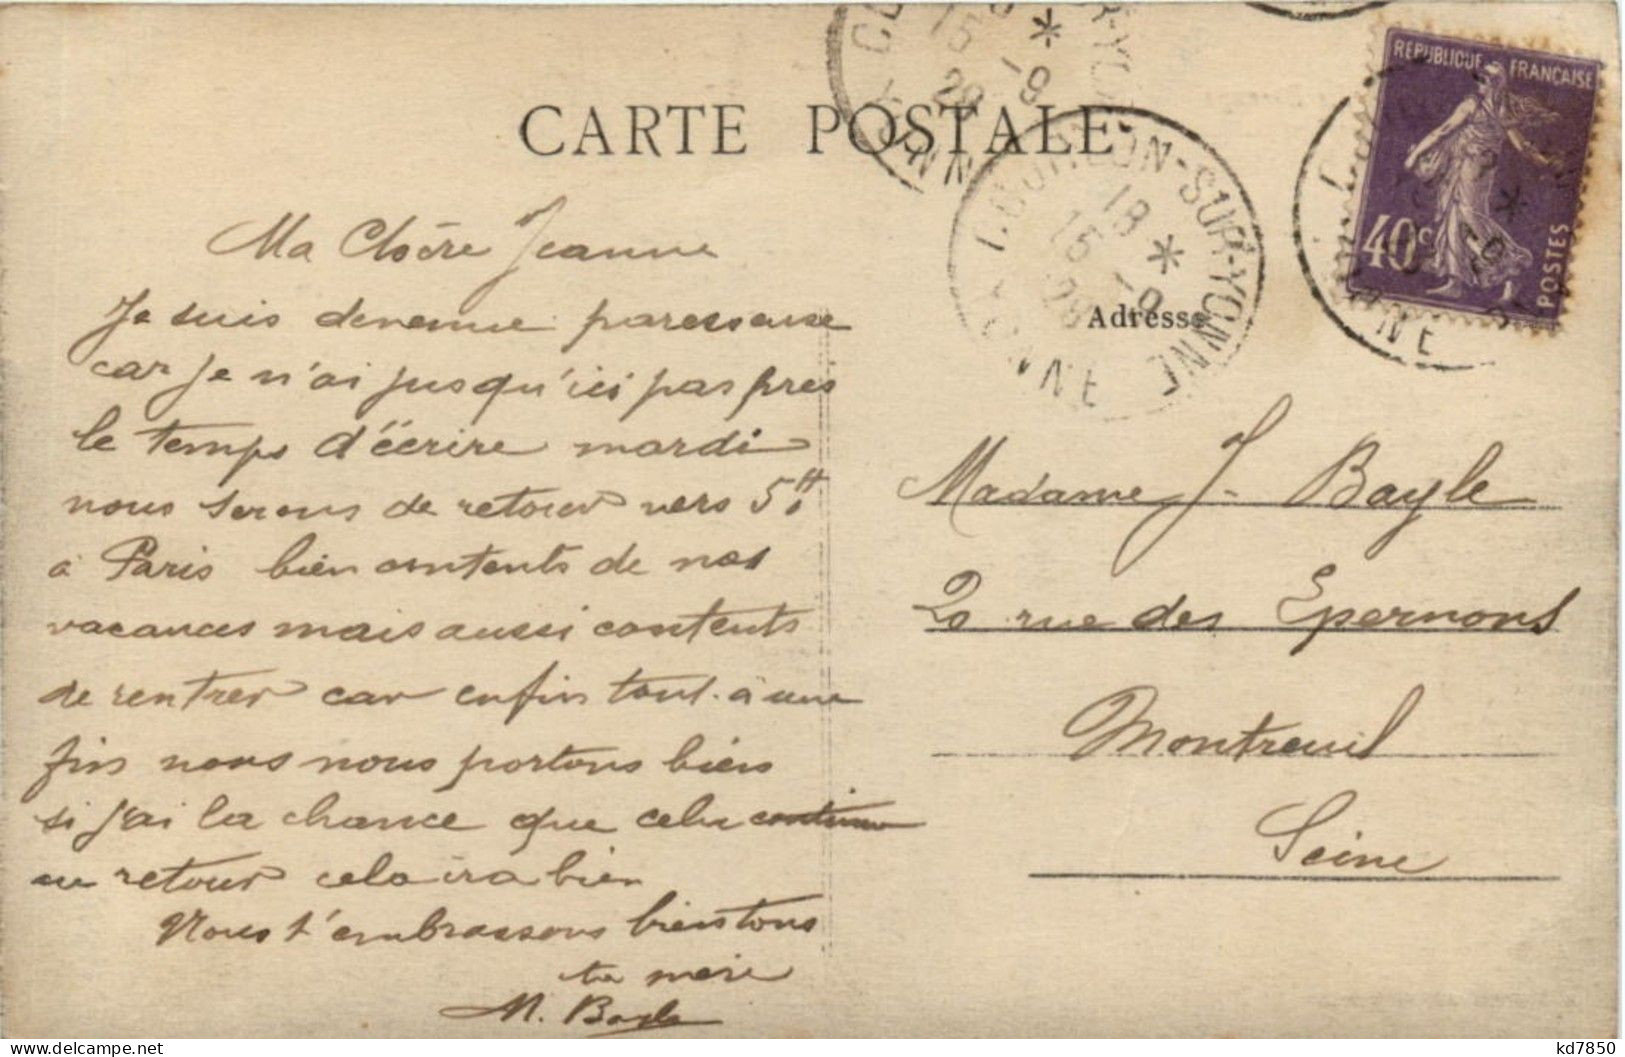 CARTE POSTALE
REPUBLIQUE FRANÇAISE
40c
POSTES
COURLON-SUR-YONNE
18 *
15 -9
28
YONNE
Adresse
Ma Chère Jeanne
Je suis devenue paresseuse
car je n'ai jusqu'ici pas pris
le temps d'écrire mardi
nous serons de retour vers 5H
à Paris bien contents de nos
vacances mais aussi contents
de rentrer car enfin tout à une
fin nous nous portons bien
si j'ai la chance que cela continue
au retour cela ira bien
Nous t'embrassons bien tous
ta mère
M. Bayle
Madame J. Bayle
20 rue des Epernons
Montreuil
Seine
kd7850